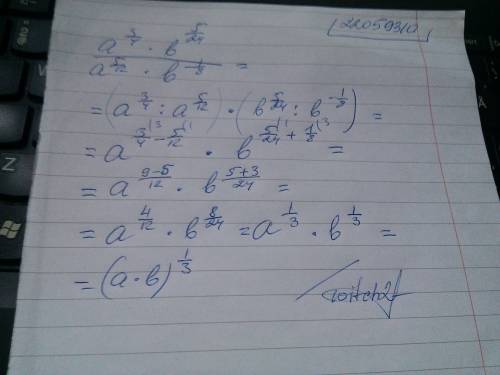 22059310
a^(3/4) · b^(5/24)
a^(5/12) · b^(-1/8) =
= (a^(3/4) : a^(5/12)) · (b^(5/24) : b^(-1/8)) =
= a^(3/4 - 5/12) · b^(5/24 + 1/8) =
= a^((9-5)/12) · b^((5+3)/24) =
= a^(4/12) · b^(8/24) = a^(1/3) · b^(1/3) =
= (a·b)^(1/3)